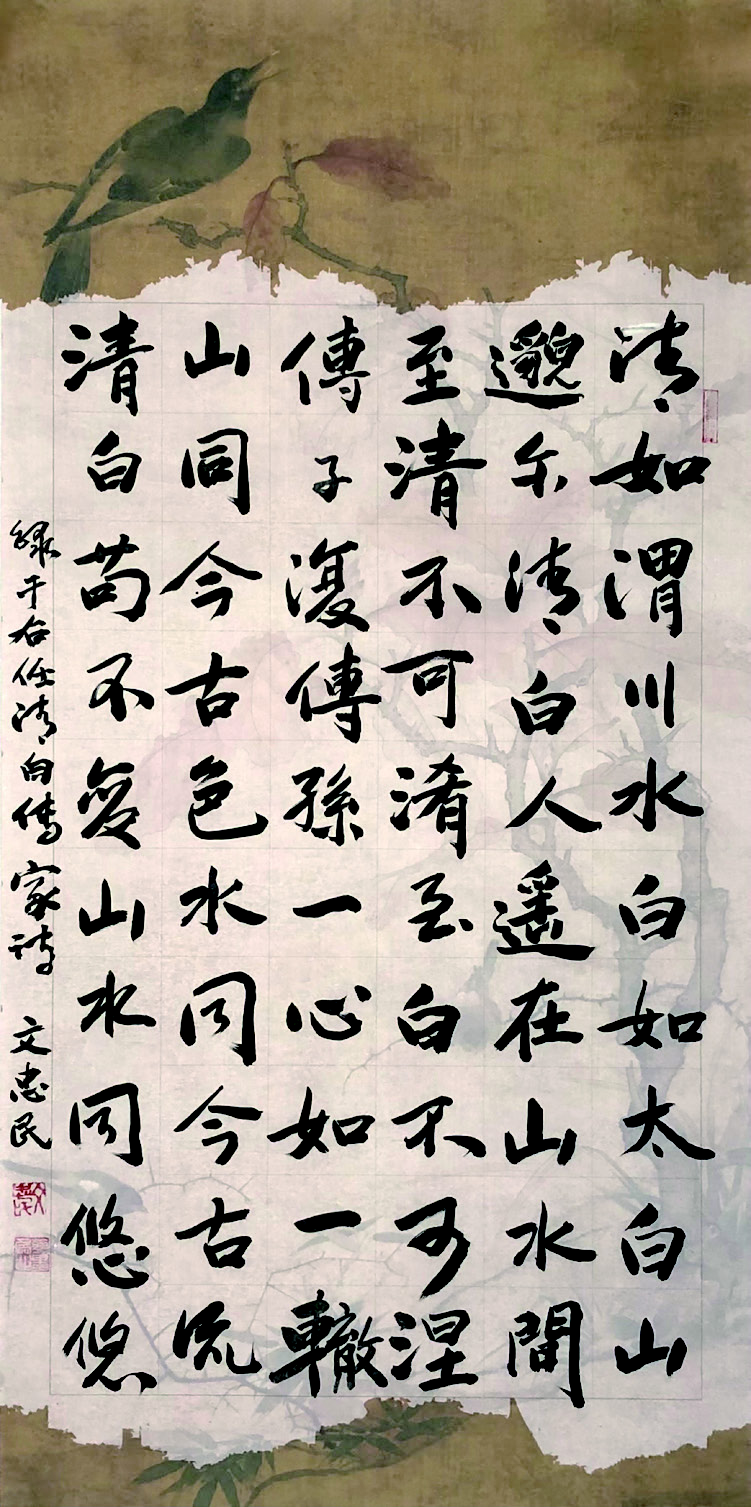 清如渭川水白如太白山
邈尔清白人遥在山水間
至清不可淆至白不可涅
傳子復傳孫一心如一轍
山同今古色水同今古流
清白苟不变山水同悠悠
録于右任清白傳家詩 文忠民